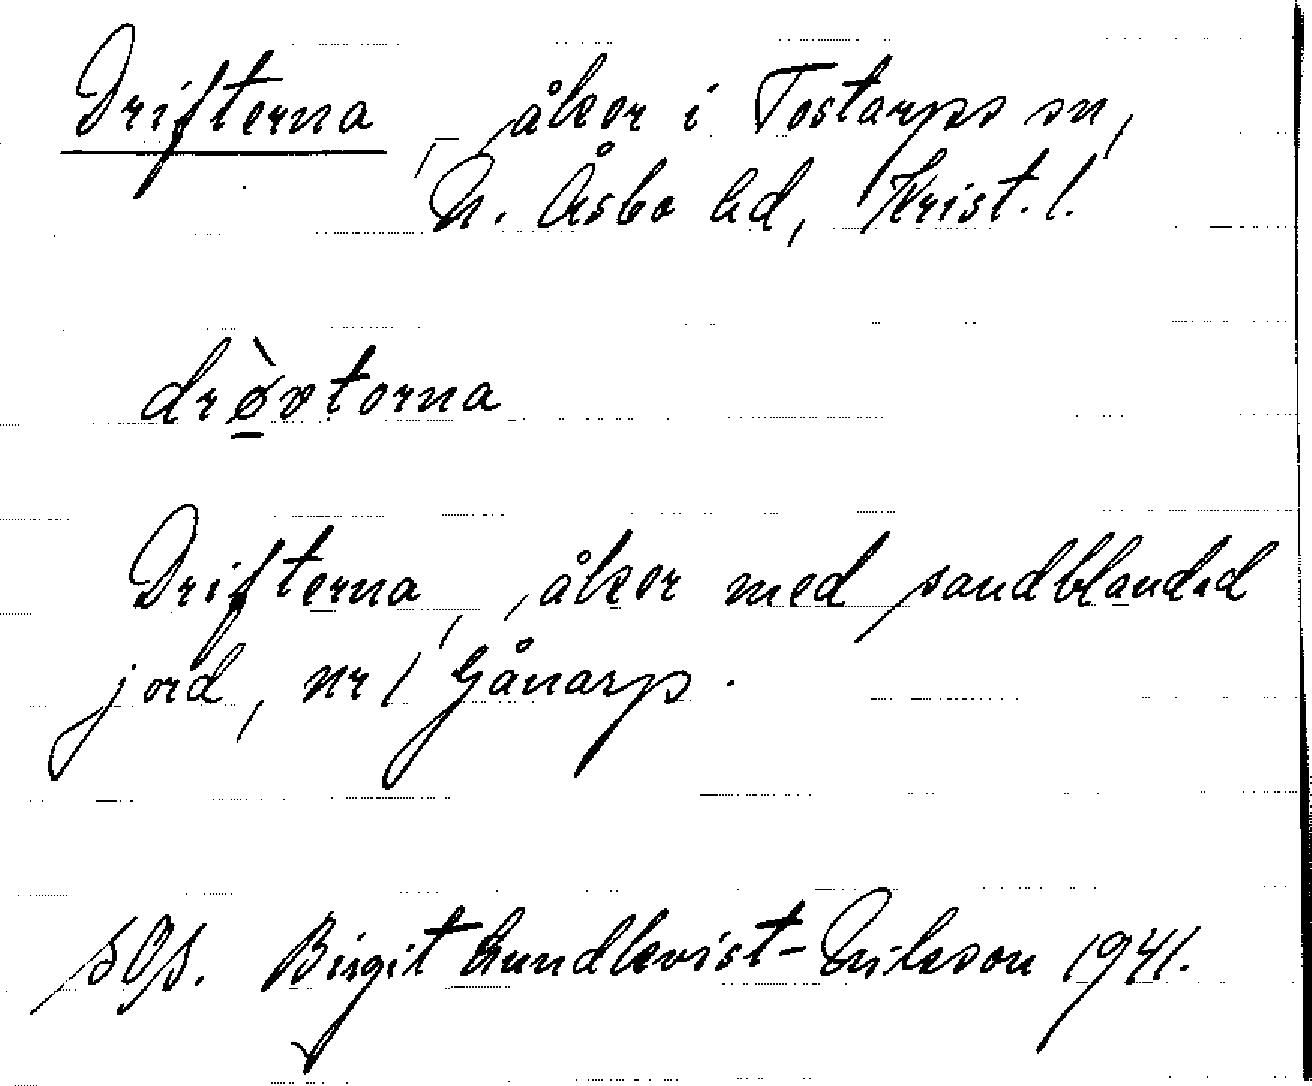 Drifterna, åker i Tostarps sn,
N. Åsbo hd, Krist. l.
drø̀vtorna
Drifterna, åker med sandblandad
jord, nr 1 Gånarp.
Birgit Lundkvist-Nilsson 1941.